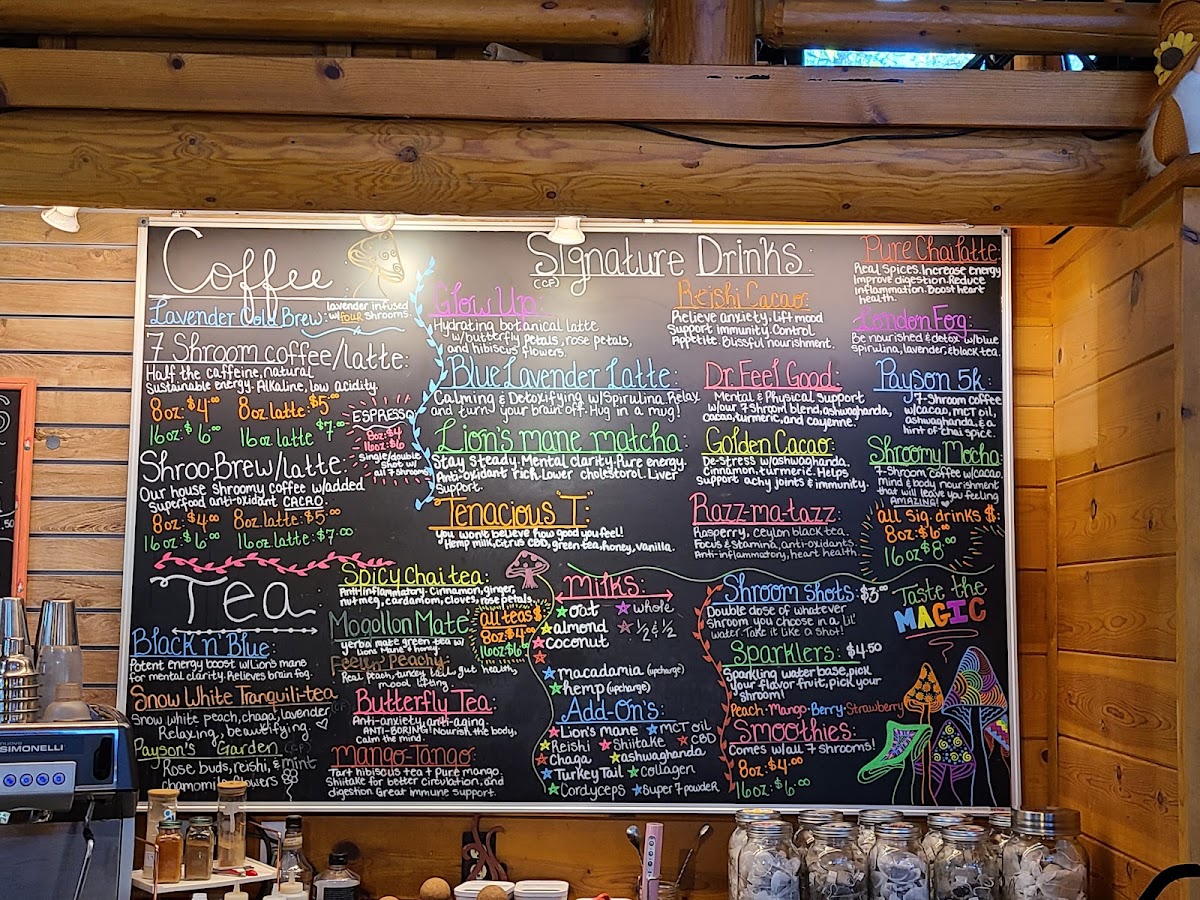 Coffee
Lavender Cold Brew: lavender infused
w/ FOUR shrooms.
7 Shroom coffee/latte:
Half the caffeine, natural
sustainable energy. Alkaline, low acidity.
8oz: $4.00 8oz latte: $5.00
16oz: $6.00 16oz latte $7.00
ESPRESSO:
8oz: $4
16oz: $6
Single/double
Shot w/
all 7 shrooms
Shroo-Brew/latte:
Our house shroomy coffee w/added
Superfood anti-oxidant CACAO.
8oz: $4.00 8oz latte: $5.00
16oz: $6.00 16oz latte: $7.00
Signature Drinks:
(CF)
Glow Up:
Hydrating botanical latte
w/butterfly petals, rose petals,
and hibiscus flowers.
Blue Lavender Latte:
Calming & Detoxifying w/Spirulina. Relax
and turn your brain off. Hug in a mug!
Lion's mane matcha:
Stay steady. Mental clarity. Pure energy.
Anti-oxidant rich. Lower cholestorol. Liver
Support.
Tenacious "T":
You won't believe how good you feel!
Hemp milk, citrus CBD, green tea, honey, vanilla.
Reishi Cacao:
Relieve anxiety, Lift mood
Support immunity. Control
Appetite. Blissful nourishment.
Dr. Feel Good:
Mental & Physical Support
w/our 7 shroom blend, ashwaghanda,
cacao, turmeric, and cayenne.
Golden Cacao:
De-Stress w/ashwaghanda,
Cinnamon, turmeric. Helps
support achy joints & immunity.
Razz-ma-tazz:
Rasperry, Ceylon black tea.
Focus & Stamina, anti-oxidants.
Anti-inflammatory, heart health
Pure Chai latte:
Real Spices. Increase energy
Improve digestion. Reduce
Inflammation. Boost heart
health.
London Fog:
Be nourished & detox w/blue
spirulina, lavender & black tea.
Payson 5k:
7-Shroom coffee
w/cacao, mct oil,
ashwaghanda, & a
hint of chai spice.
Shroomy Mocha:
7-Shroom coffee w/cacao
mind & body nourishment
that will leave you feeling
AMAZING!
all sig. drinks $:
8oz: $6.00
16oz $8.00
Tea
Black n' Blue:
Potent energy boost w/Lion's mane
for mental clarity. Relieves brain fog.
Snow White Tranquili-tea
Snow white peach, chaga, lavender
Relaxing, beautifying.
Payson's Garden (CF)
Rose buds, reishi, & mint
chamomile flowers
Spicy Chai tea:
Anti-inflammatory. Cinnamon, ginger,
nutmeg, cardamom, cloves, rose petals.
Mogollon Mate
yerba mate green tea w/
Lions Mane & honey.
Feelin' Peachy:
Real peach, turkey tail, gut health,
mood lifting
Butterfly Tea
Anti-anxiety, anti-aging.
ANTI-BORING! Nourish the body,
Calm the mind.
Mango-Tango:
Tart hibiscus tea + Pure mango
Shiitake for better circulation, and
digestion. Great immune support.
all teas $
8oz: $4.00
16oz: $6.00
Milks:
oat whole
almond ½ & ½
coconut
macadamia (upcharge)
hemp (upcharge)
Add-On's:
Lion's mane MCT oil
Reishi Shiitake CBD
Chaga ashwaghanda
Turkey Tail collagen
Cordyceps Super 7 powder
Shroom Shots: $3.00
Double dose of whatever
Shroom you choose in a lil'
water. Take it like a shot!
Sparklers: $4.50
Sparkling water base, pick
your flavor fruit, pick your
shroom!
Peach-Mango-Berry-Strawberry
Smoothies:
Comes w/all 7 shrooms!
8oz: $4.00
16oz: $6.00
Taste the
MAGIC
SIMONELLI